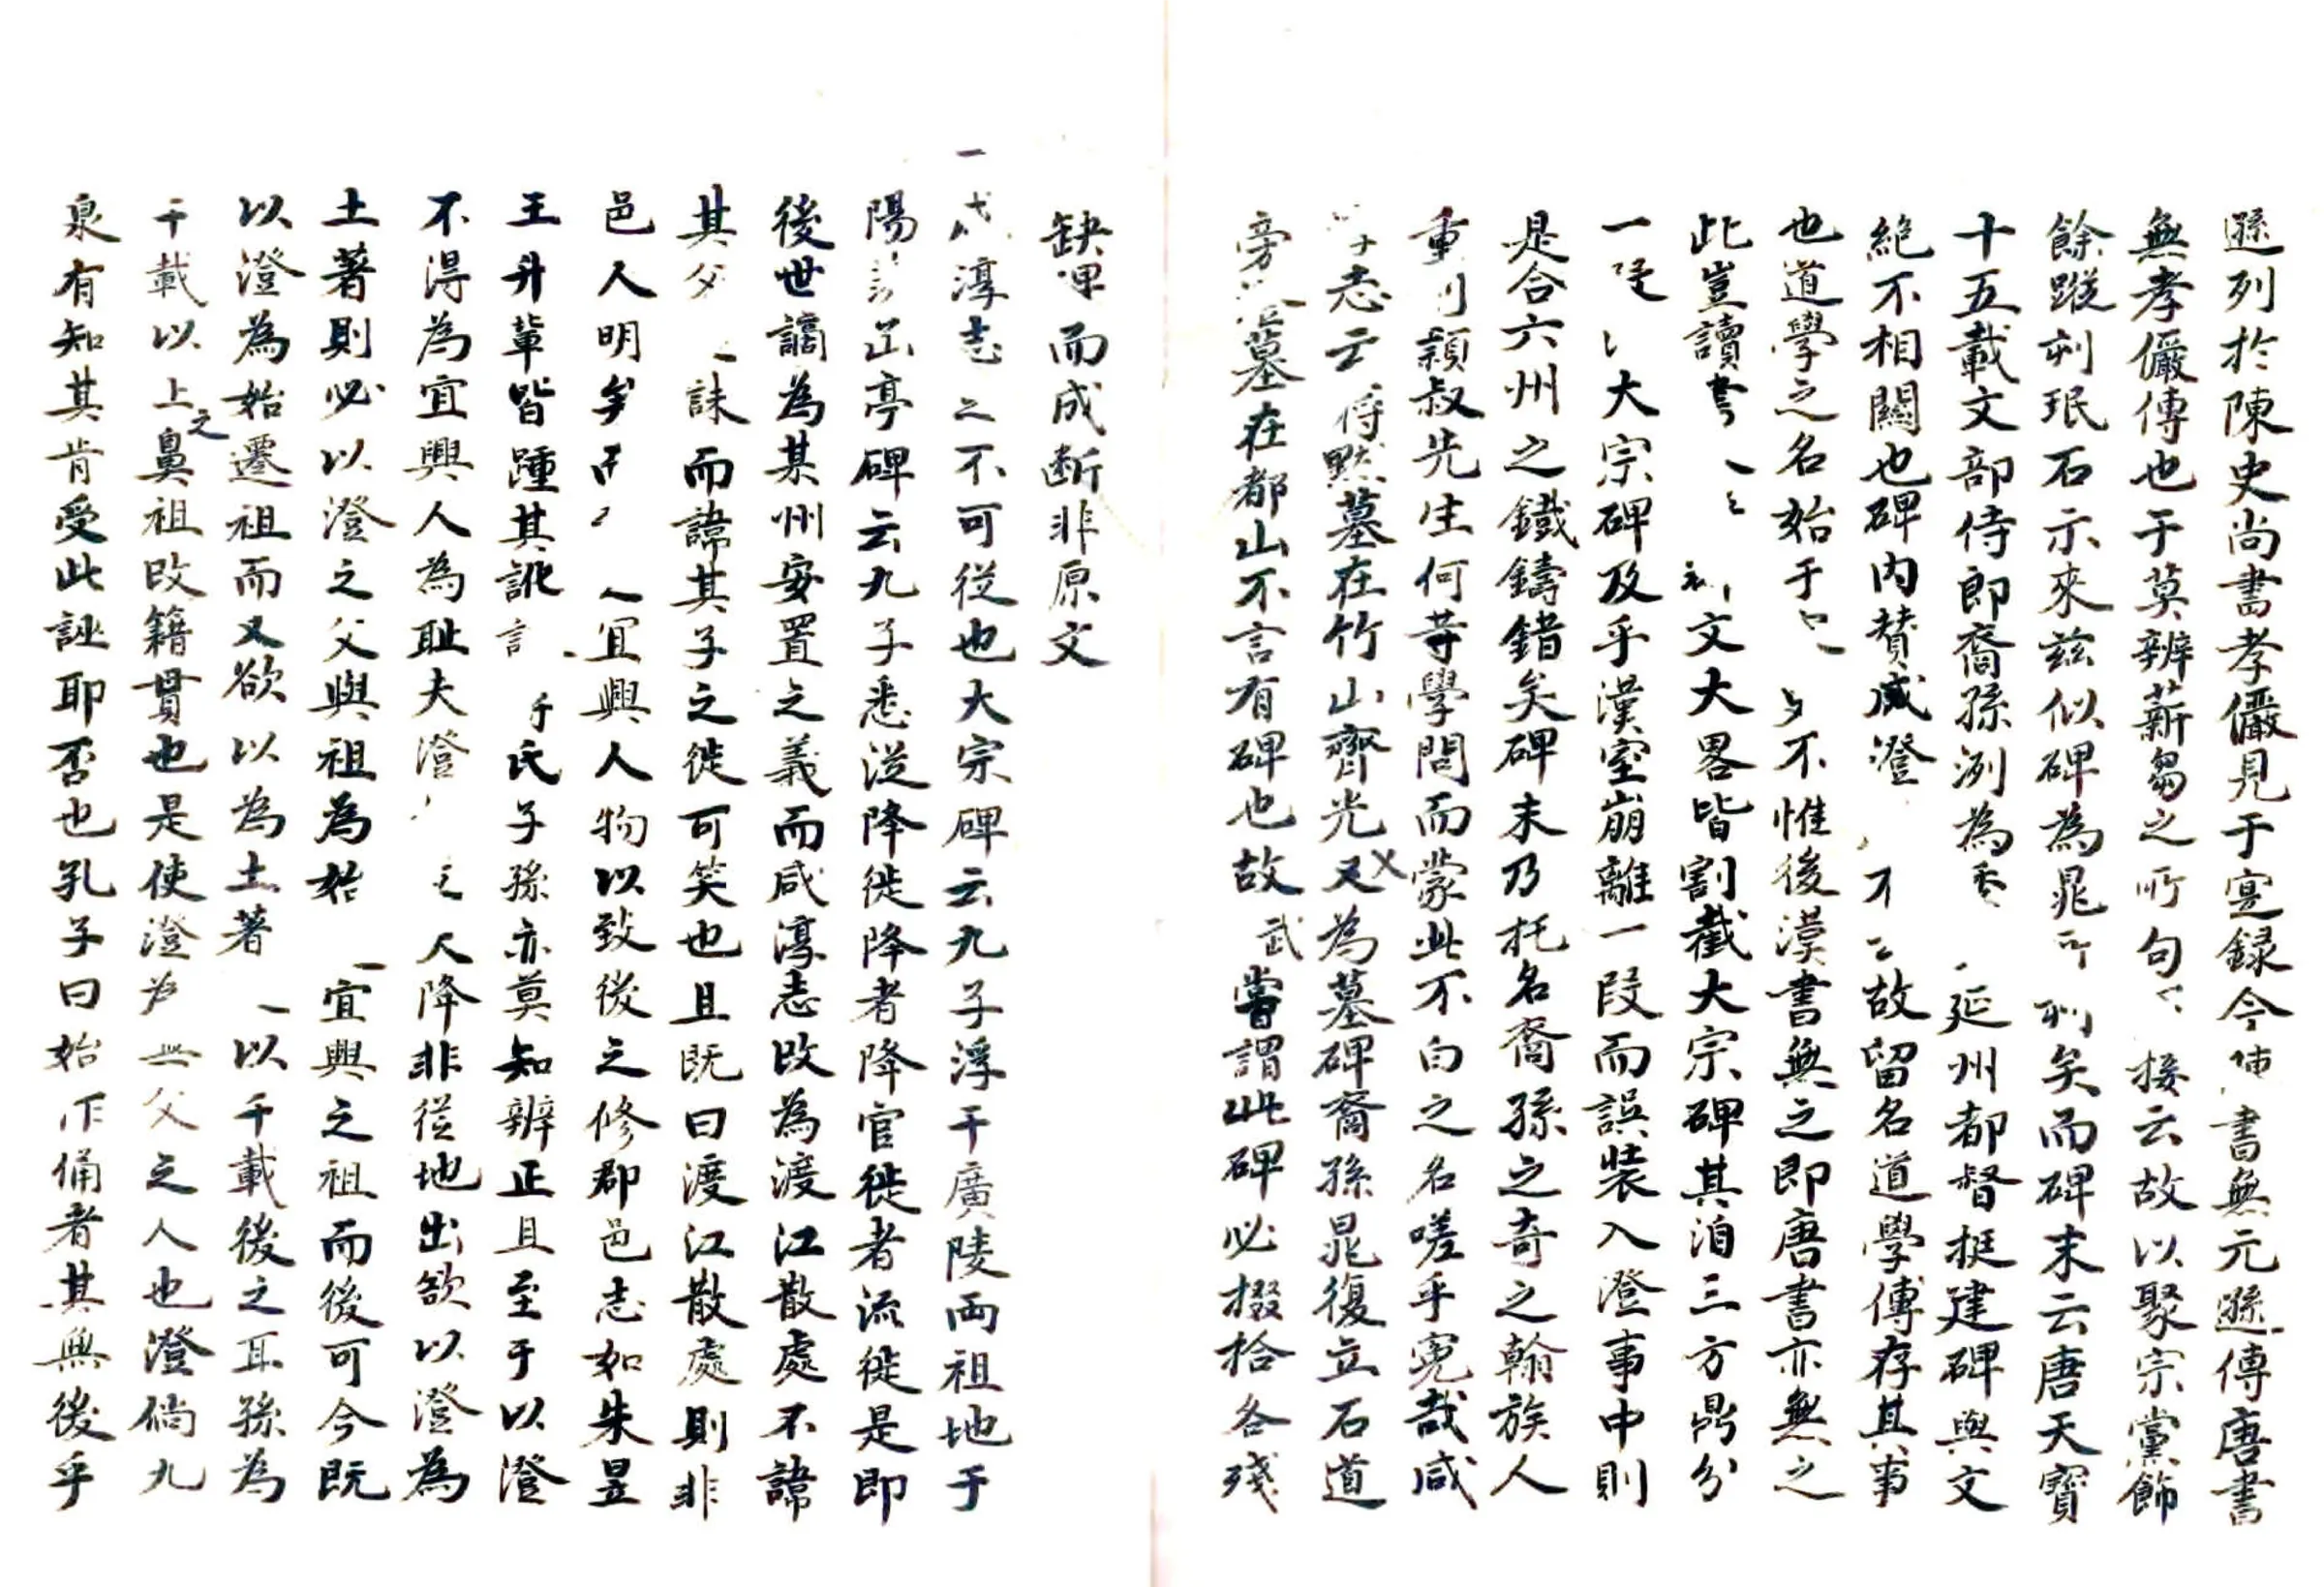 遜列於陳史尚書孝儼見于寔録今陳書無元遜傳唐書
無孝儼傳也于莫辨薪芻之所句接云故以聚宗黨飾
餘蹤刋珉石示來兹似碑為晁矣而碑末云唐天寶
十五載文部侍郎裔孫洌為延州都督挺建碑與文
絶不相關也碑内賛咸澄故留名道學傳存其事
也道學之名始于不惟後漢書無之即唐書亦無之
此豈讀書文大畧皆割截大宗碑其洎三方鼎分
一段大宗碑及乎漢室崩離一段而誤装入澄事中則
是合六州之鐵鑄錯矣碑末乃托名裔孫之奇之翰族人
重刋頴叔先生何等學問而蒙此不白之名嗟乎寃哉咸
志云侍黙墓在竹山齊光又為墓碑裔孫晁復立石道
旁墓在都山不言有碑也故武嘗謂此碑必掇拾各殘
缺碑而成断非原文
一咸淳志之不可從也大宗碑云九子浮干廣陵両祖地于
陽㘴亭碑云九子悉從降徙降者降官徙者流徙是即
後世謫為某州安置之義而咸淳志改為渡江散處不諱
其父誅而諱其子之徙可笑也且既曰渡江散處則非
邑人明矣宜興人物以致後之修郡邑志如朱昱
王升輩皆踵其訛言氏子孫亦莫知辨正且至于以澄
不得為宜興人為耻夫澄之人降非從地出欲以澄為
土著則必以澄之父與祖為始宜興之祖而後可今既
以澄為始遷祖而又欲以為土著以千載後之耳孫為
千載以上之鼻祖改籍貫也是使澄為無父之人也澄倘九
泉有知其肯受此誣耶否也孔子曰始作俑者其無後乎